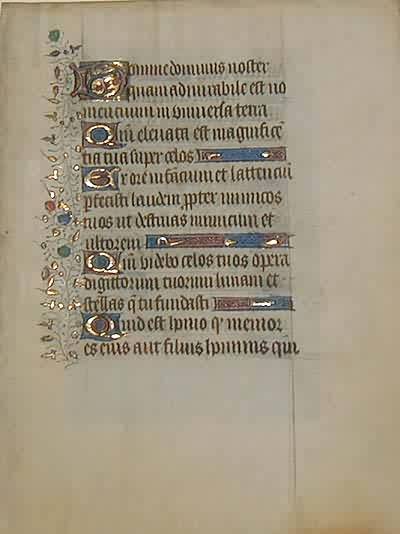 Domine dominus noster
quam admirabile est no
men tuum in universa terra
Qm̄ elevata est magnificē
tia tua super celos
Ex ore infancium et lattenciū
pfecisti laudem ppter inimicos
tuos ut destruas inimicum et
ultorem
Qm̄ videbo celos tuos opera
digittorum tuorum lunam et
stellas q̄ tu fundasti
Quid est homo qͥ memor
es eius aut filius hominis qm̄